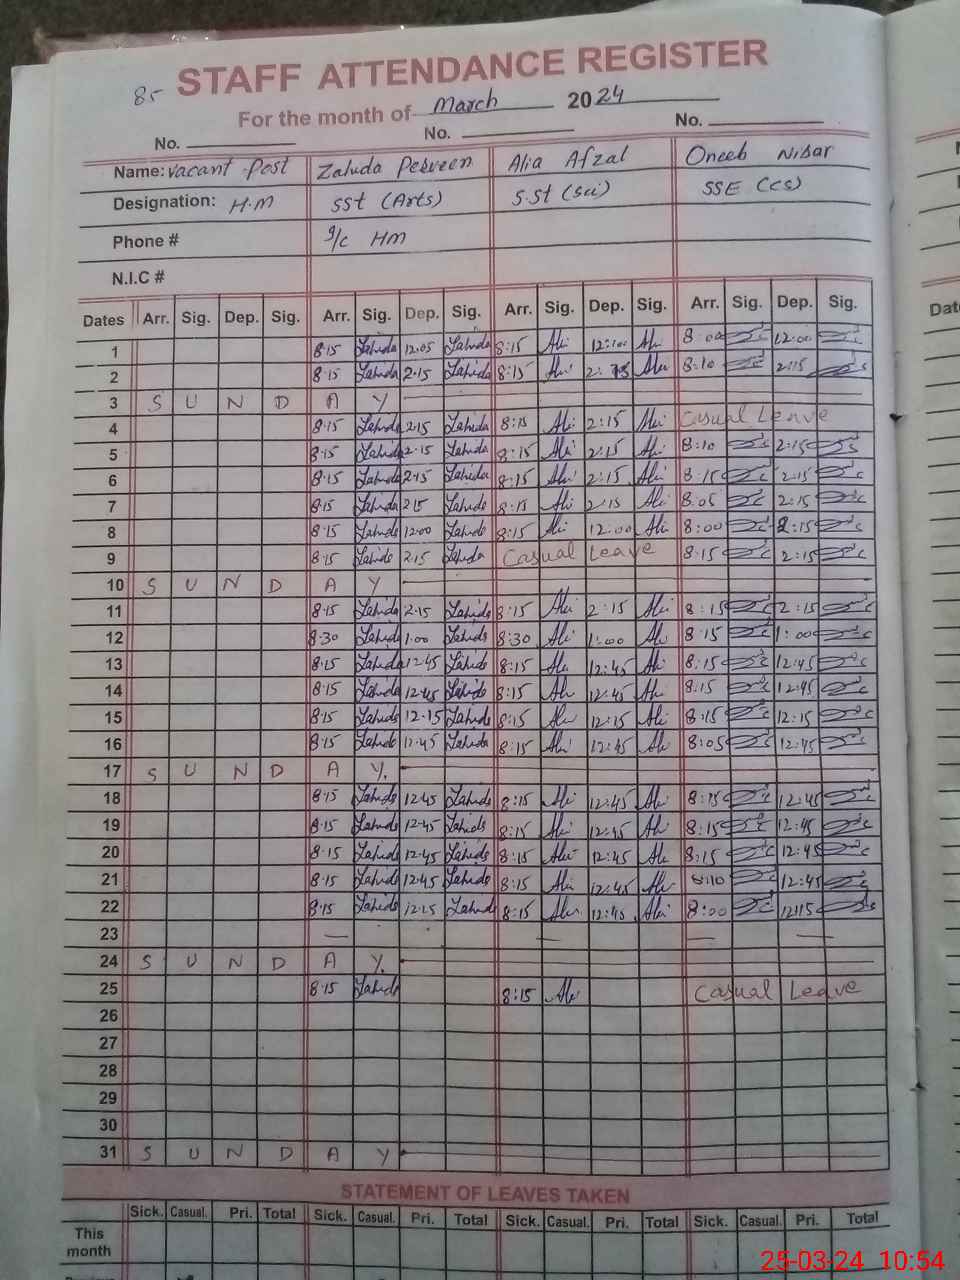 85 STAFF ATTENDANCE REGISTER
For the month of March 2024
No. No. No.
Name: Vacant Post Zahida Perveen Alia Afzal Oneeb Nisar
Designation: H.M SST (Arts) S.St (Sci) SSE (CS)
Phone # I/c HM
N.I.C #
Dates Arr. Sig. Dep. Sig. Arr. Sig. Dep. Sig. Arr. Sig. Dep. Sig. Arr. Sig. Dep. Sig.
1 8:15 Zahida 12:05 Zahida 8:15 Ali 12:00 Ali 8:00 12:00
2 8:15 Zahida 2:15 Zahida 8:15 Ali 2:15 Ali 8:10 2:15
3 S U N D A Y
4 8:15 Zahida 2:15 Zahida 8:15 Ali 2:15 Ali Casual Leave
5 8:15 Zahida 2:15 Zahida 8:15 Ali 2:15 Ali 8:10 2:15
6 8:15 Zahida 2:15 Zahida 8:15 Ali 2:15 Ali 8:15 2:15
7 8:15 Zahida 2:15 Zahida 8:15 Ali 2:15 Ali 8:05 2:15
8 8:15 Zahida 12:00 Zahida 8:15 Ali 12:00 Ali 8:00 2:15
9 8:15 Zahida 2:15 Zahida Casual Leave 8:15 2:15
10 S U N D A Y
11 8:15 Zahida 2:15 Zahida 8:15 Ali 2:15 Ali 8:15 2:15
12 8:30 Zahida 1:00 Zahida 8:30 Ali 1:00 Ali 8:15 1:00
13 8:15 Zahida 12:45 Zahida 8:15 Ali 12:45 Ali 8:15 12:45
14 8:15 Zahida 12:45 Zahida 8:15 Ali 12:45 Ali 8:15 12:45
15 8:15 Zahida 12:15 Zahida 8:15 Ali 12:15 Ali 8:15 12:15
16 8:15 Zahida 12:45 Zahida 8:15 Ali 12:45 Ali 8:05 12:45
17 S U N D A Y.
18 8:15 Zahida 12:45 Zahida 8:15 Ali 12:45 Ali 8:15 12:45
19 8:15 Zahida 12:45 Zahida 8:15 Ali 12:45 Ali 8:15 12:45
20 8:15 Zahida 12:45 Zahida 8:15 Ali 12:45 Ali 8:15 12:45
21 8:15 Zahida 12:45 Zahida 8:15 Ali 12:45 Ali 8:10 12:45
22 8:15 Zahida 12:15 Zahida 8:15 Ali 12:45 Ali 8:00 12:15
23 — — — —
24 S U N D A Y.
25 8:15 Zahida 8:15 Ali Casual Leave
26
27
28
29
30
31 S U N D A Y
STATEMENT OF LEAVES TAKEN
Sick. Casual. Pri. Total Sick. Casual. Pri. Total Sick. Casual. Pri. Total Sick. Casual. Pri. Total
This
month
25-03-24 10:54